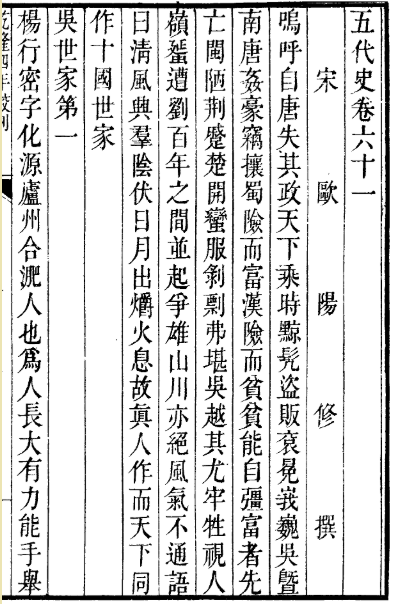 五代史卷六十一
宋歐陽修撰
嗚呼自唐失其政天下乘時黥髠盜販袞冕峩巍吳曁
南唐姦豪竊攘蜀險而富漢險而貧貧能自彊富者先
亡閩陋荆蹙楚開蠻服剝剽弗堪吳越其尤牢牲視人
嶺蜑遭劉百年之間並起爭雄山川亦絕風氣不通語
曰清風興羣陰伏日月出爝火息故眞人作而天下同
作十國世家
吳世家第一
楊行密字化源廬州合淝人也爲人長大有力能手舉
乾隆四年校刊